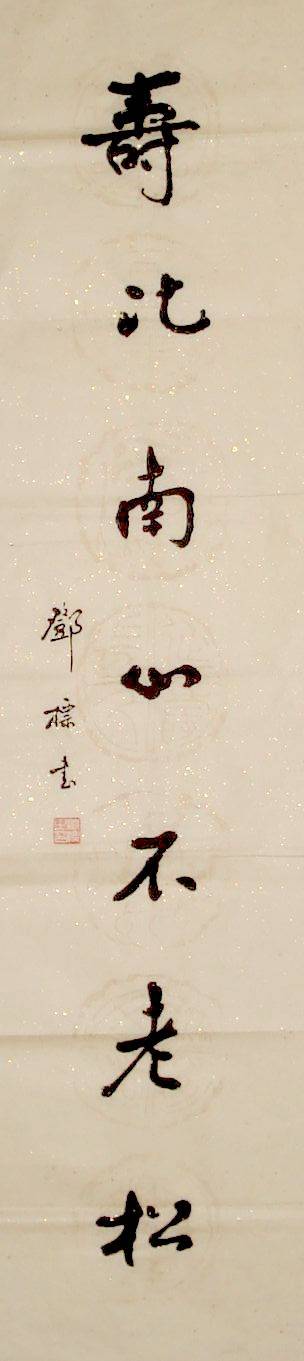 壽比南山不老松
鄧標書